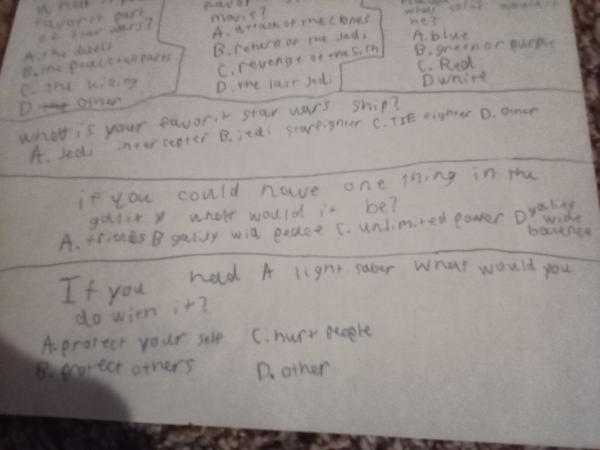 favorit part
of star wars?
A. the duels
B. the peacefull parts
C. The killing
D. other
movie?
A. attack of the clones
B. return of the Jedi
C. revenge of the sith
D. the last Jedi
be?
A. blue
B. green or purple
C. Red
D white
what is your favorit star wars ship?
A. Jedi intercepter B. jedi starfighter C. TIE fighter D. other
if you could have one thing in the
what would it be?
A. friends B peace C. unlimited power D
wide
If you had A light saber what would you
do with it?
A. protect your self C. hurt people
B. protect others D. other